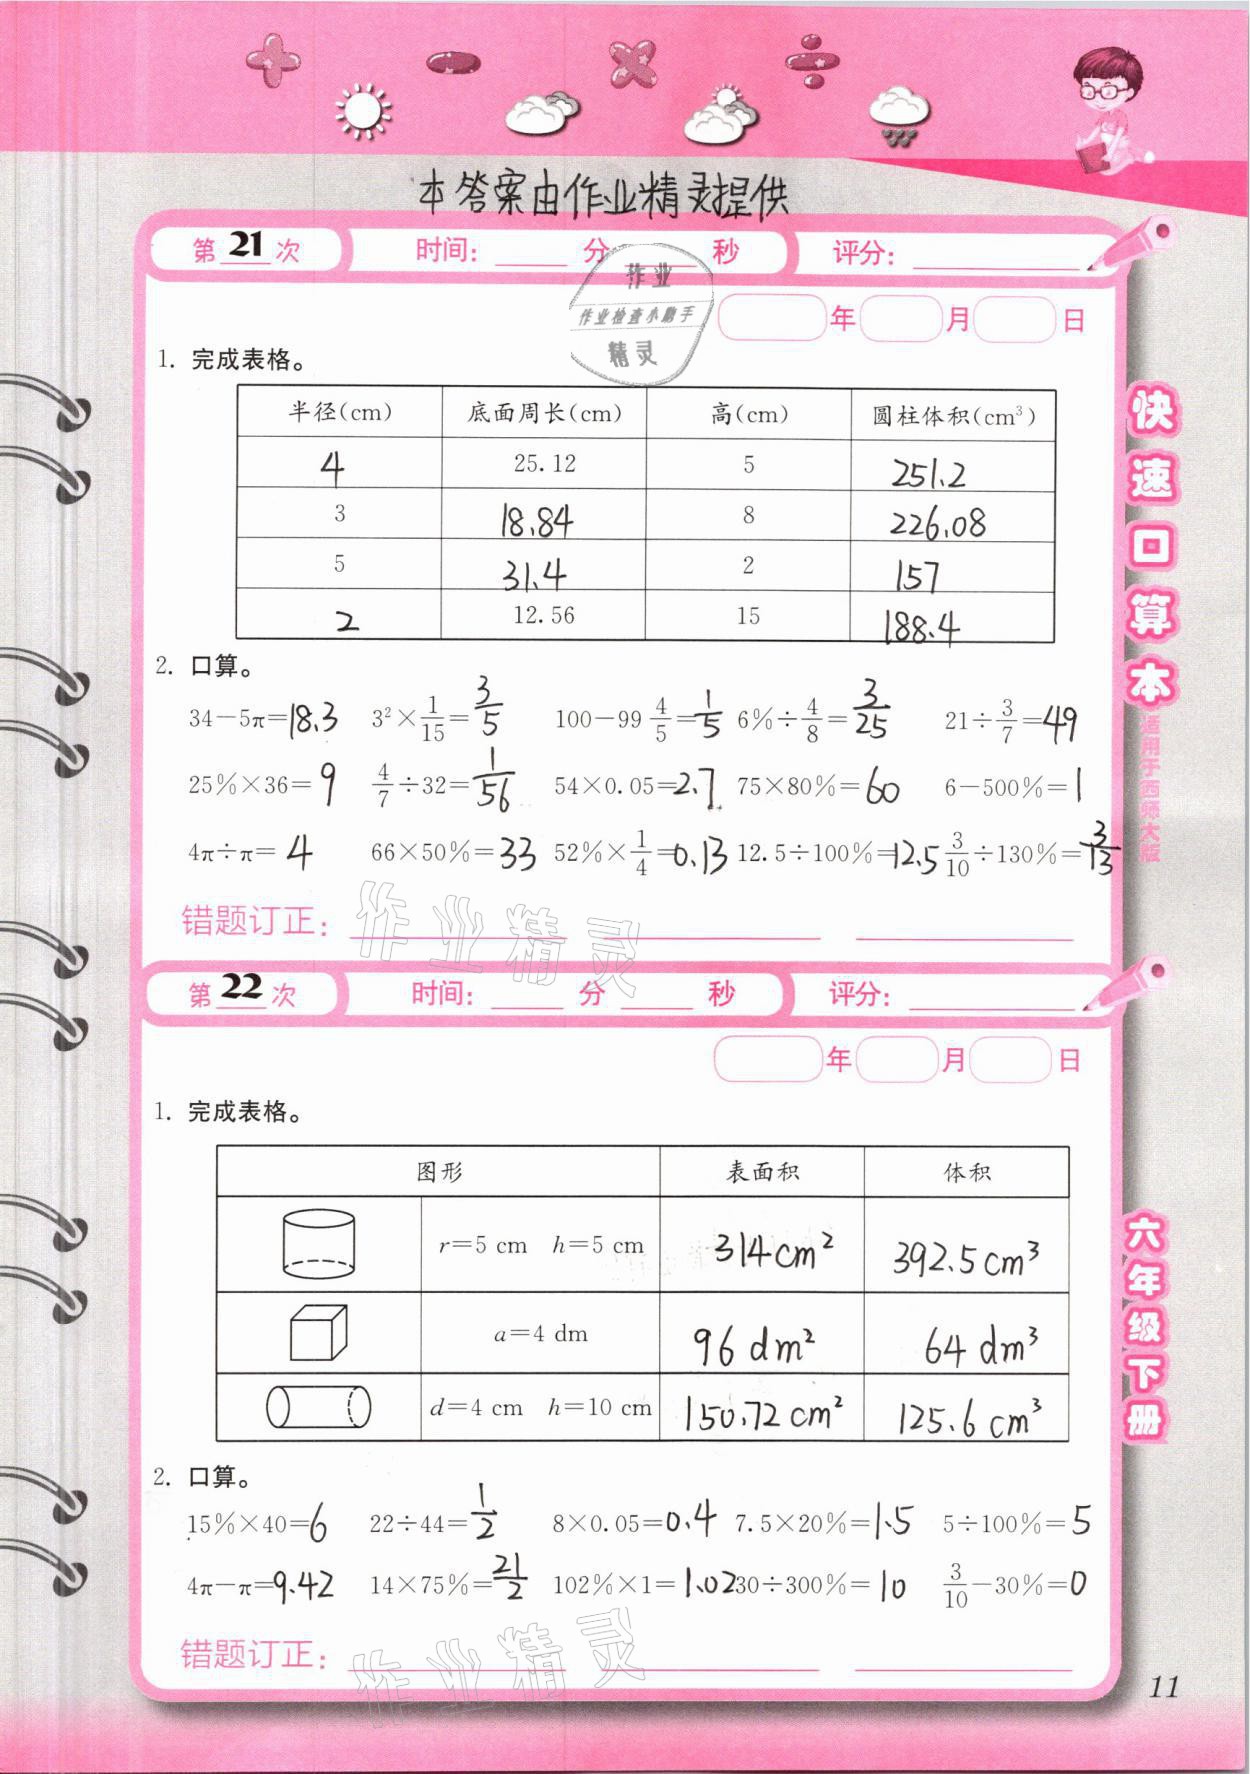 本答案由作业精灵提供
第 21 次 时间：____分____秒 评分：____
作业
作业检查小助手
精灵
年 月 日
1. 完成表格。
半径(cm) 底面周长(cm) 高(cm) 圆柱体积(cm³)
4 25.12 5 251.2
3 18.84 8 226.08
5 31.4 2 157
2 12.56 15 188.4
2. 口算。
34-5π=18.3 3²×1/15=3/5 100-99 4/5=1/5 6%÷4/8=3/25 21÷3/7=49
25%×36=9 4/7÷32=1/56 54×0.05=2.7 75×80%=60 6-500%=1
4π÷π=4 66×50%=33 52%×1/4=0.13 12.5÷100%=12.5 3/10÷130%=3/13
错题订正：
作业精灵
第 22 次 时间：____分____秒 评分：____
年 月 日
1. 完成表格。
图形 表面积 体积
r=5 cm h=5 cm 314cm² 392.5cm³
a=4 dm 96 dm² 64 dm³
d=4 cm h=10 cm 150.72cm² 125.6cm³
2. 口算。
15%×40=6 22÷44=1/2 8×0.05=0.4 7.5×20%=1.5 5÷100%=5
4π-π=9.42 14×75%=21/2 102%×1=1.02 30÷300%=10 3/10-30%=0
错题订正：
作业精灵
快速口算本
适用于西师大版
六年级下册
11